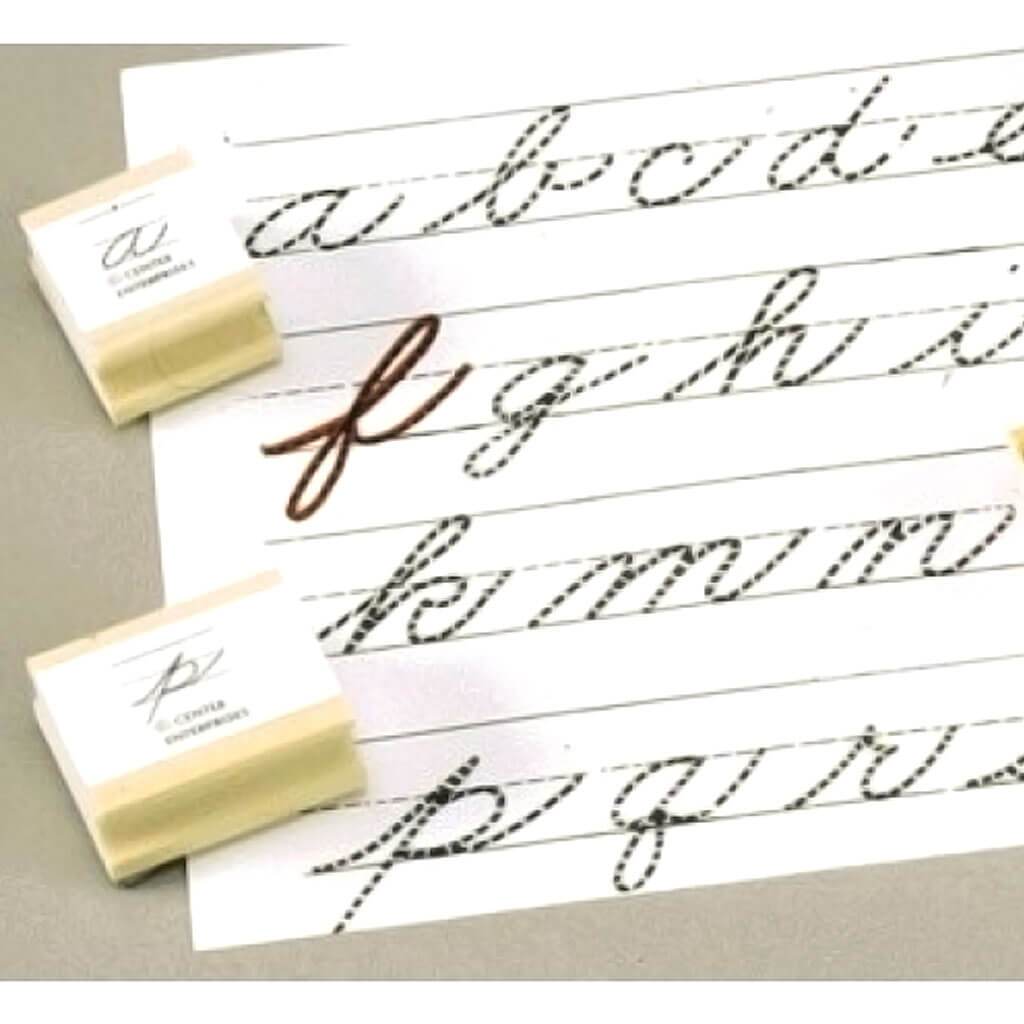 a b c d e
f g h i
k m n
p q r
a
© CENTER
ENTERPRISES
p
© CENTER
ENTERPRISES